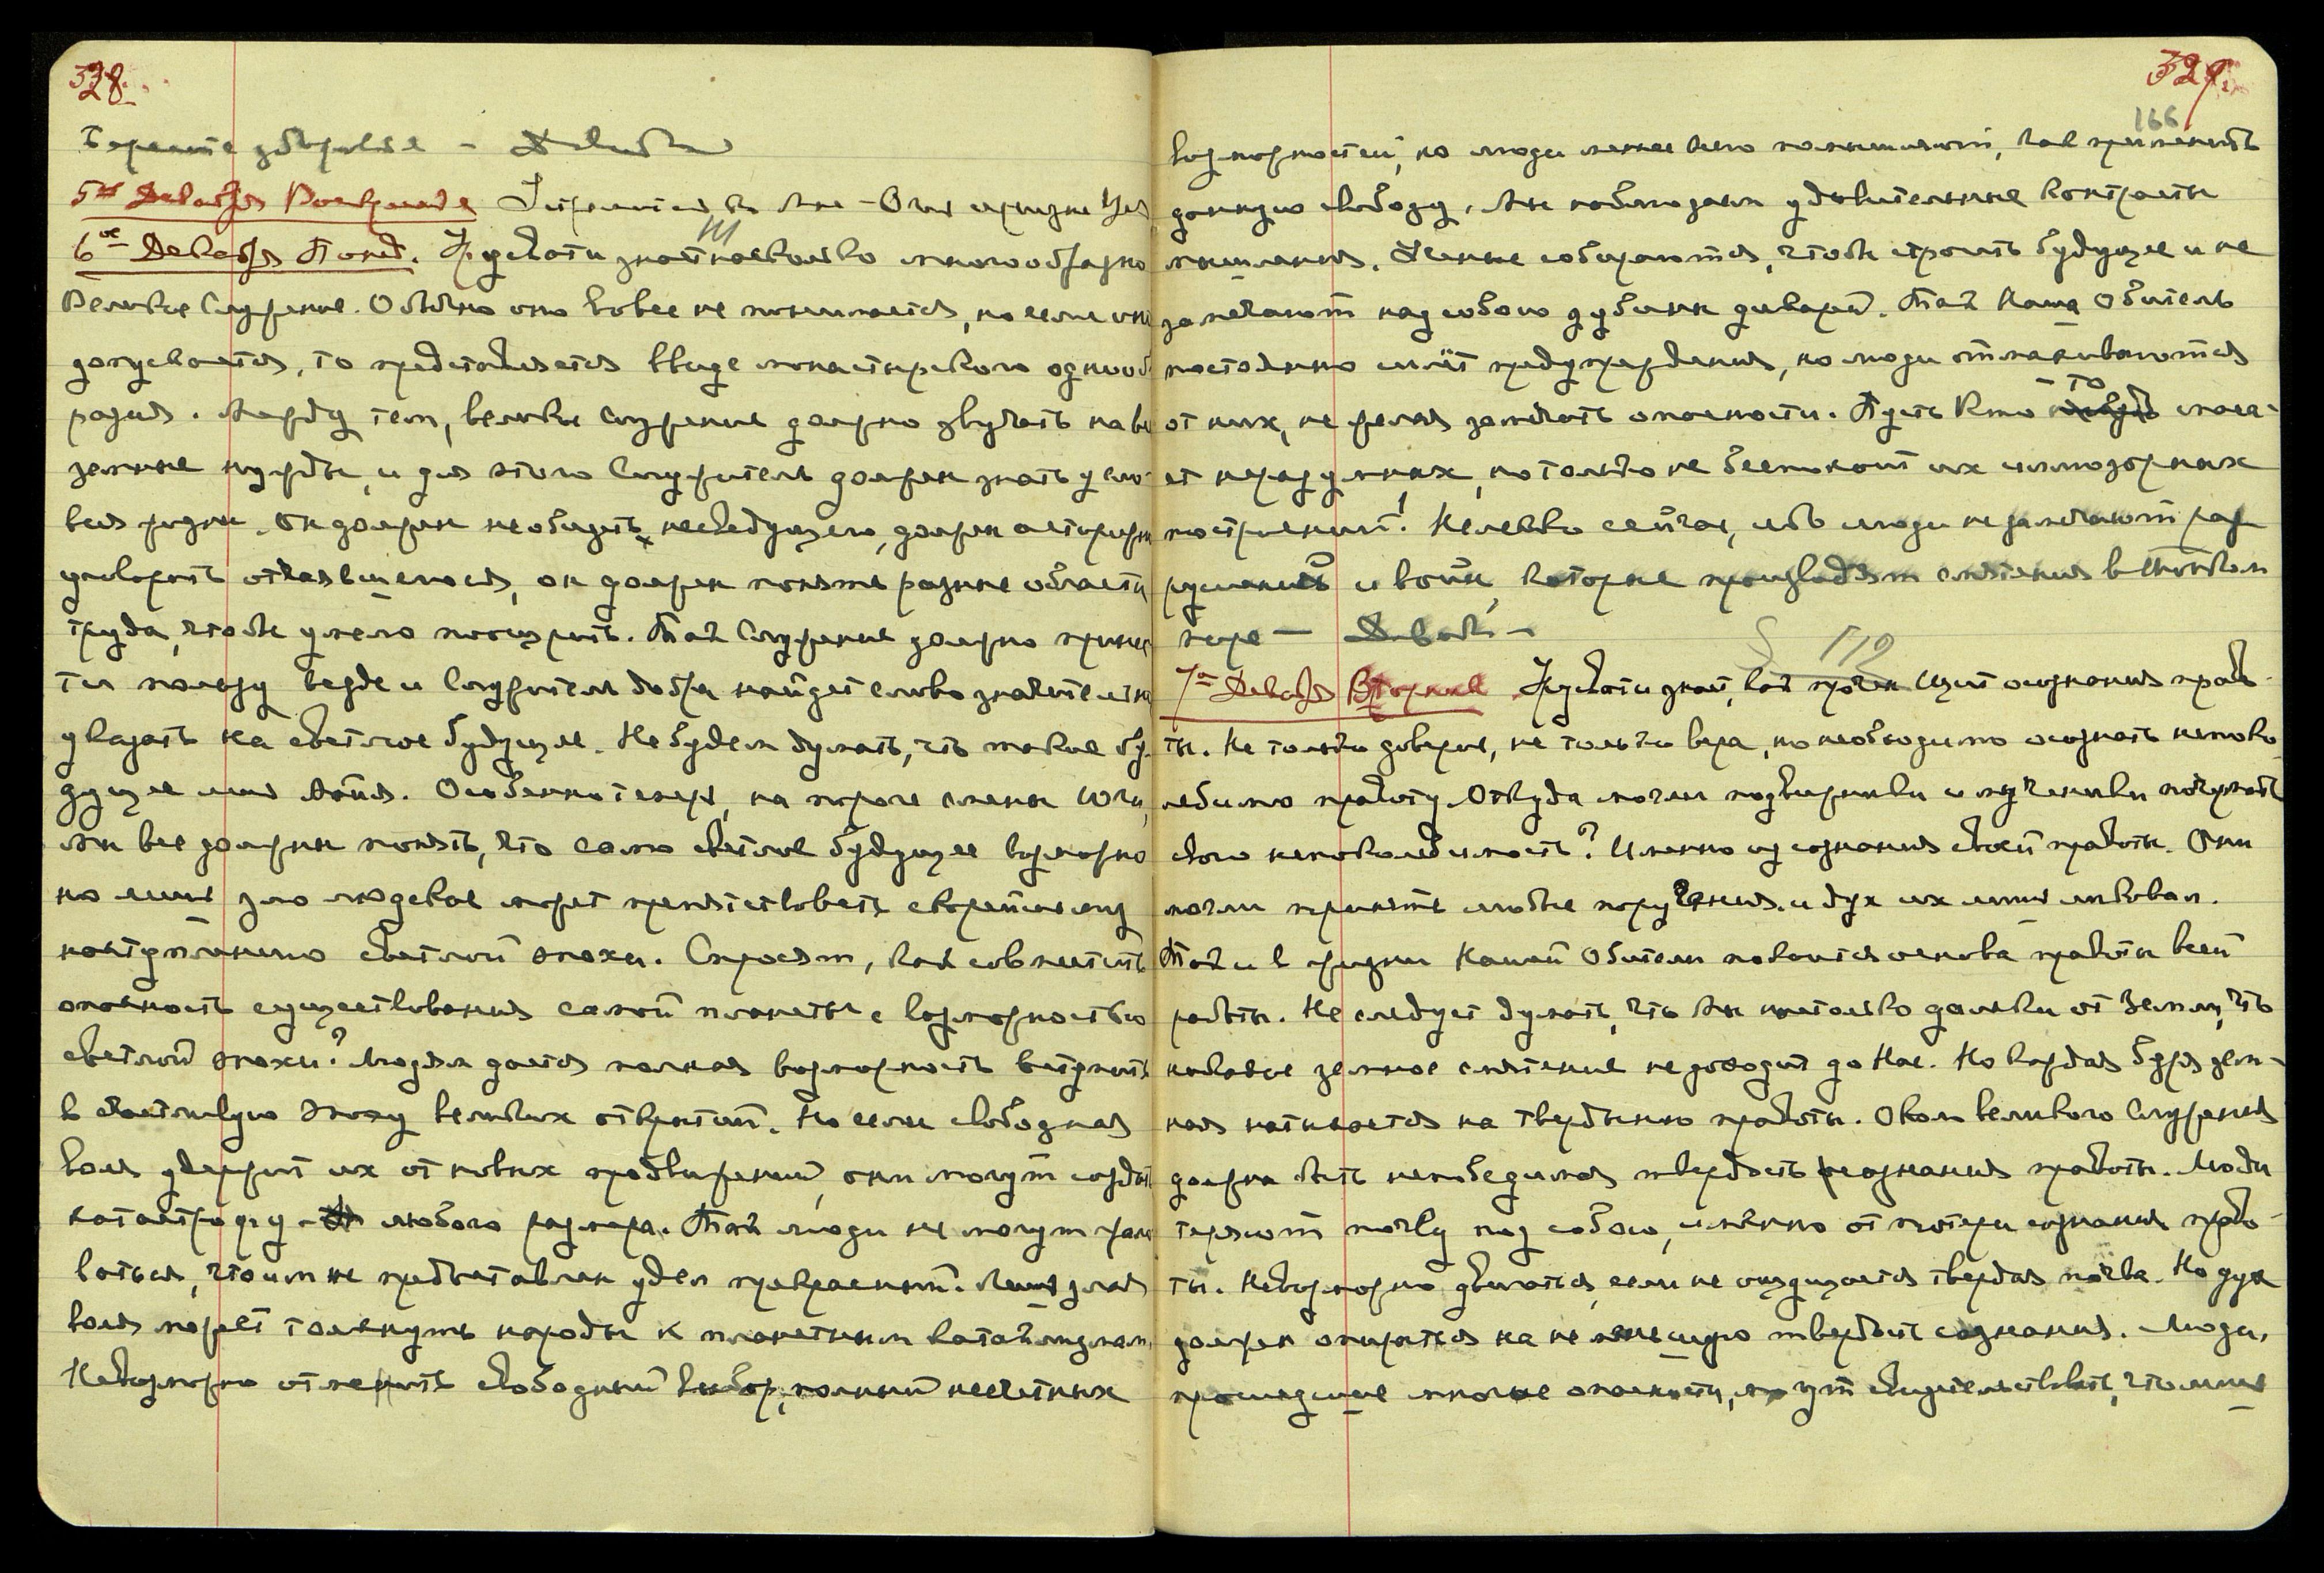 328.
Берегите здоровье –
5ое Декабря Воскресенье
6ое Декабря Понед. Урусвати знает насколько многообразно
Великое Служение. Обычно оно вовсе не понимается, но если оно
допускается, то представляется ввиде монастырского однооб
разия. Между тем, великое Служение должно звучать на все
земные нужды, и для этого Служитель должен знать усло-
вия жизни. Он должен необидеть несведущего, должен осторожно
уговорить отчаявшегося, он должен понять разные области
труда, чтобы умело поощрить. Так Служение должно принес
ти пользу везде и Служитель добра найдет слово значительное
указать на светлое будущее. Не будем думать, что такое бу-
дущее лишь Майя. Особенно теперь, на пороге смены Юги,
мы все должны понять, что само светлое будущее возможно
но лишь зло людское может препятствовать скорейшему
наступлению светлой эпохи. Спросят, как совместить
опасность существования самой планеты с возможностью
светлой эпохи? Людям дается полная возможность вступить
в счастливую эпоху великих открытий. Но если свободная
воля удержит их от новых продвижений, они могут создать
катастрофу любого размера. Так люди не могут жало
ваться, что им не предоставлен удел прекрасный. Лишь злая
воля может толкнуть народы к планетным катаклизмам.
Невозможно отменить свободный выбор, полный несчетных
329.
166
возможностей, но люди менее всего помышляют, как применить
данную свободу. Мы наблюдаем удивительные контрасты
мышления. Ученые собираются, чтобы строить будущее и не
замечают над собою дубины дикарей. Так Наша Обитель
постоянно шлёт предупреждения, но люди отмахиваются
от них, не желая замечать опасности. Пусть кто-то спаса-
ет неразумных, но только не беспокоит их иллюзорных
построений! Нелегко сейчас, ибо люди не замечают раз
рушений и войн, которые производят смятения в Тонком
мире –
119
7ое Декабря Вторник Урусвати знает, как прочен Щит осознания право-
ты. Не только доверие, не только вера, но необходимо осознать непоко
лебимую правоту. Откуда могли подвижники и мученики почерпать
свою непоколебимость? Именно из сознания своей правоты. Они
могли принять любые поручения и дух их лишь ликовал.
Так и в жизни Нашей Обители покоится основа правоты всей
работы. Не следует думать, что Мы настолько далеки от Земли, что
никакое земное смятение не доходит до Нас. Но каждая буря зем-
ная натыкается на твердыню правоты. Около великого Служения
должна быть непобедимая твердость сознания правоты. Люди
теряют почву под собою, именно от потери сознания право-
ты. Невозможно двигаться, если не ощущается твердая почва. Но дух
должен опираться на не меньшую твердость сознания. Люди,
прошедшие многие опасности, могут свидетельствовать, что лишь